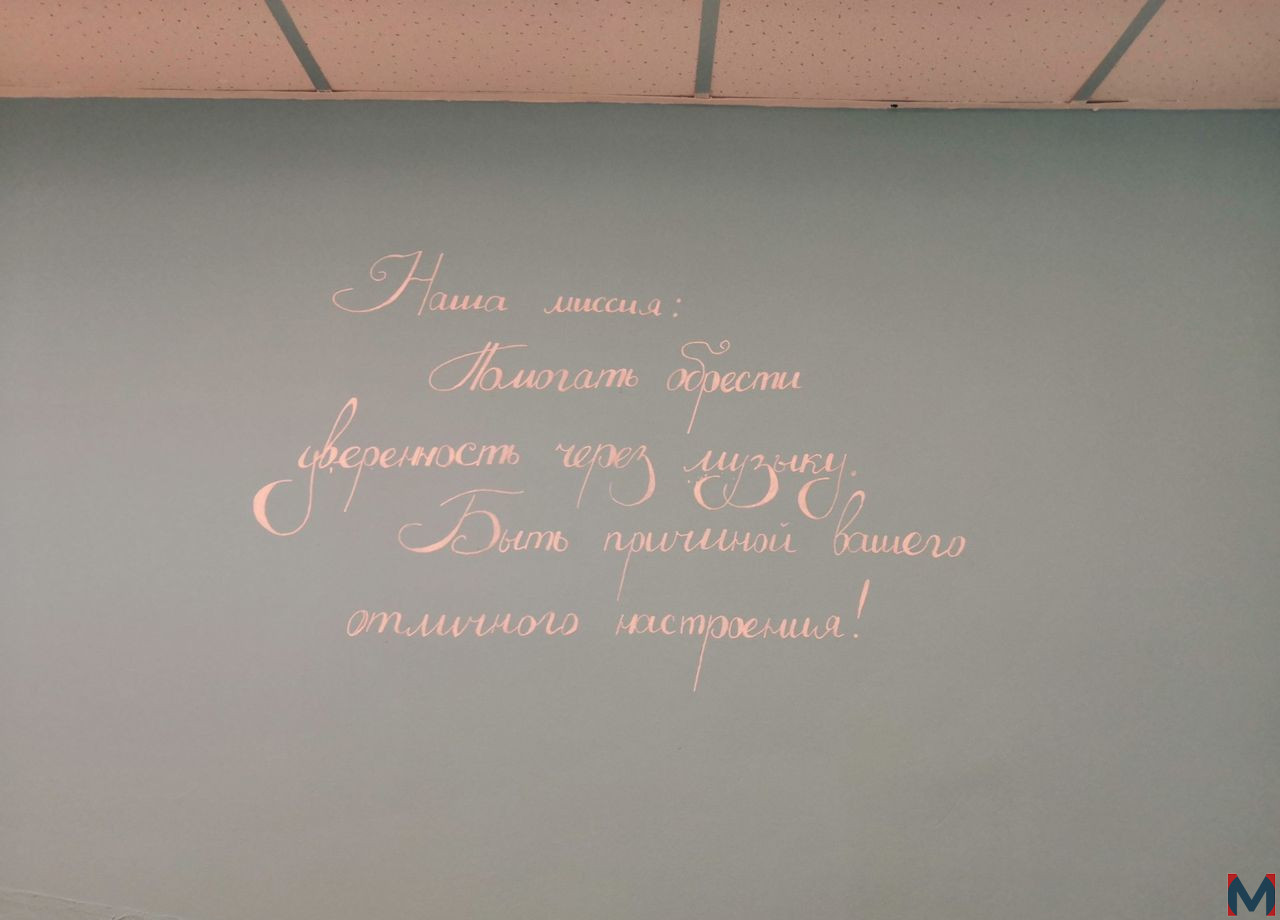 Наша миссия:
Помогать обрести
уверенность через музыку.
Быть причиной вашего
отличного настроения!
M